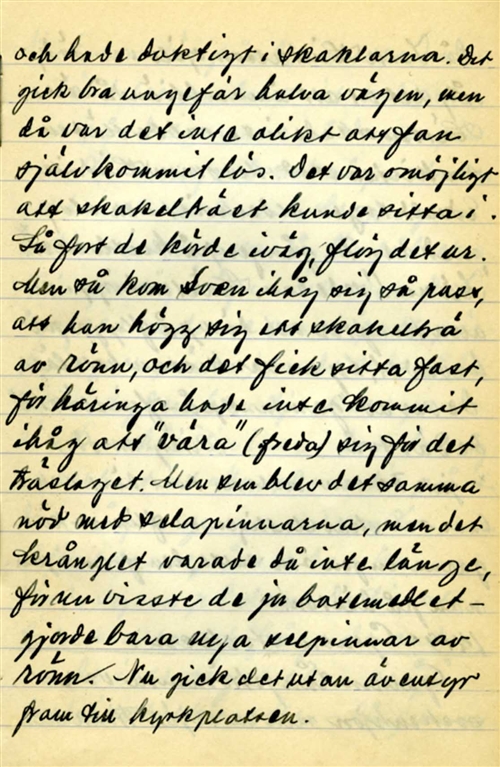 och hade duktigt i skaklarna. Det
gick bra ungefär halva vägen, men
då var det inte olikt att fan
själv kommit lös. Det var omöjligt
att skakelträet kunde sitta i.
Så fort de körde iväg, flög det ur.
Men så kom Sven ihåg sig så pass,
att han högg sig ett skakelträ
av rönn, och det fick sitta fast,
för käringa hade inte kommit
ihåg att "vära" (freda) sig för det
träslaget. Men sen blev det samma
nöd med selapinnarna, men det
krånglet varade då inte länge,
för nu visste de ju botemedlet –
gjorde bara nya selpinnar av
rönn. Nu gick det utan äventyr
fram till kyrkplatsen.